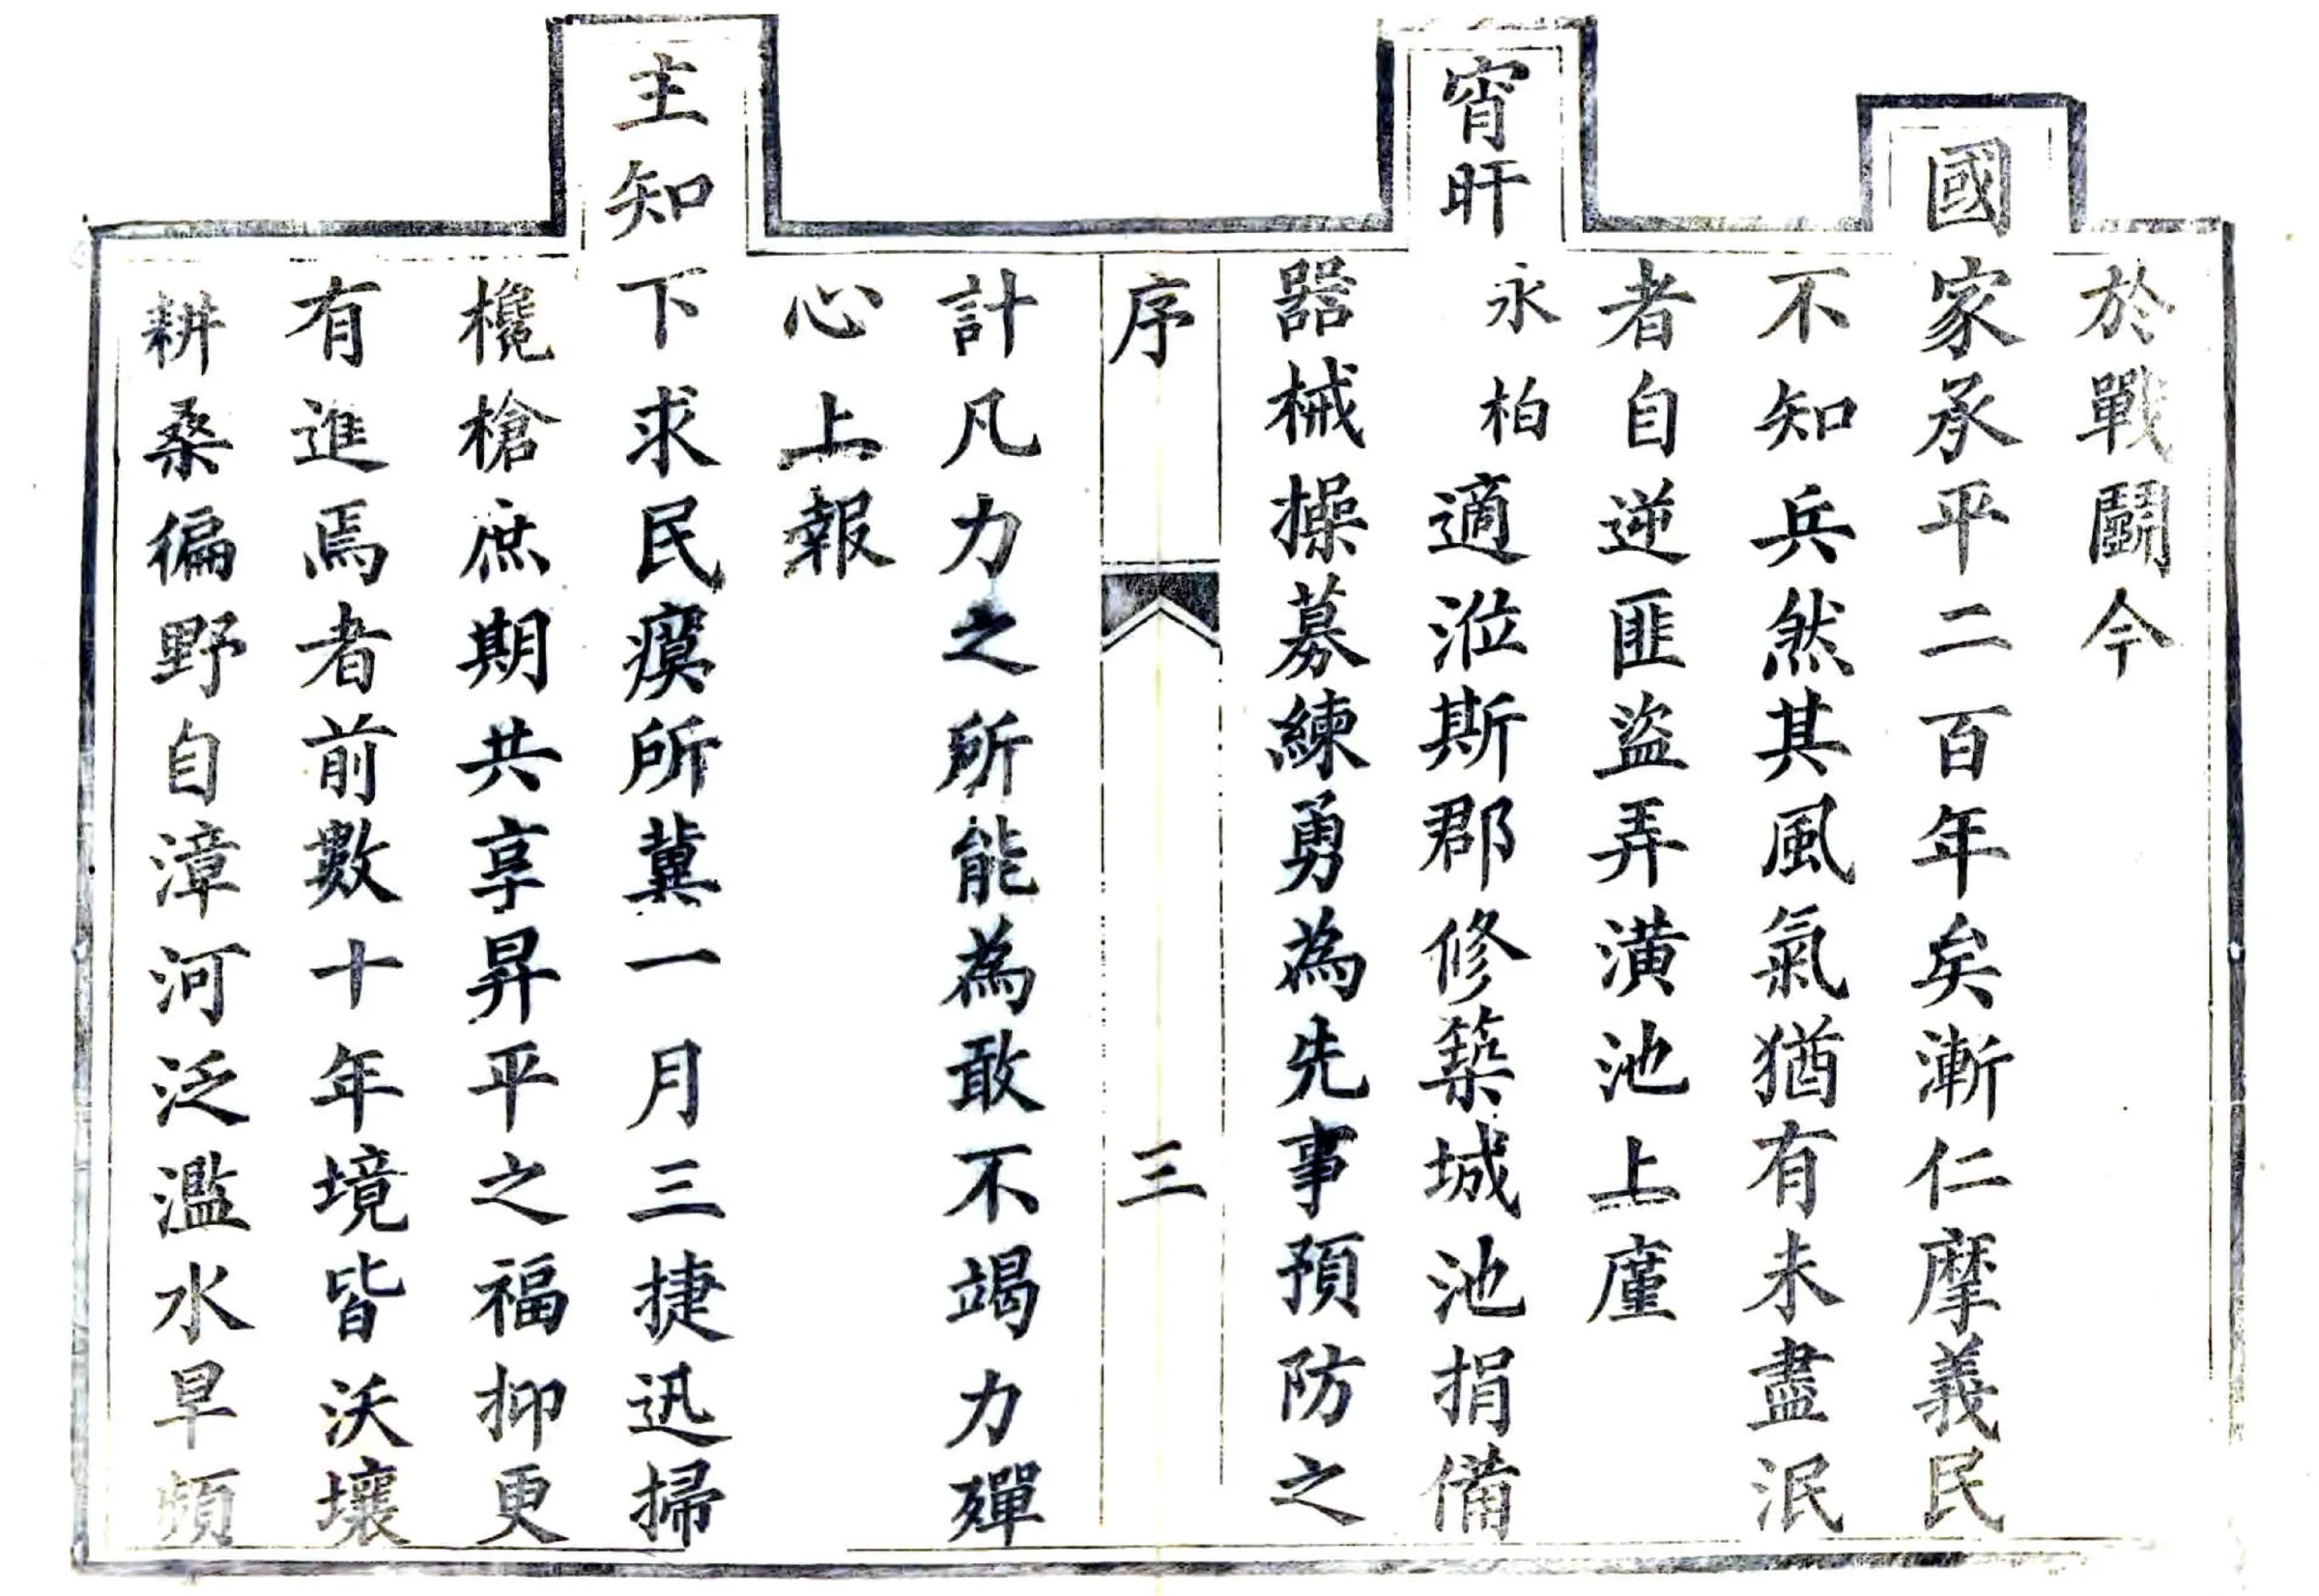 於戰鬭今
國家承平二百年矣漸仁摩義民
不知兵然其風氣猶有未盡泯
者自逆匪盜弄潢池上廑
宵旰永柏適涖斯郡修築城池捐備
器械操募練勇為先事預防之
序 三
計凡力之所能為敢不竭力殫
心上報
主知下求民瘼所冀一月三捷迅掃
欃槍庶期共享昇平之福抑更
有進焉者前數十年境皆沃壤
耕桑徧野自漳河泛濫水旱頻